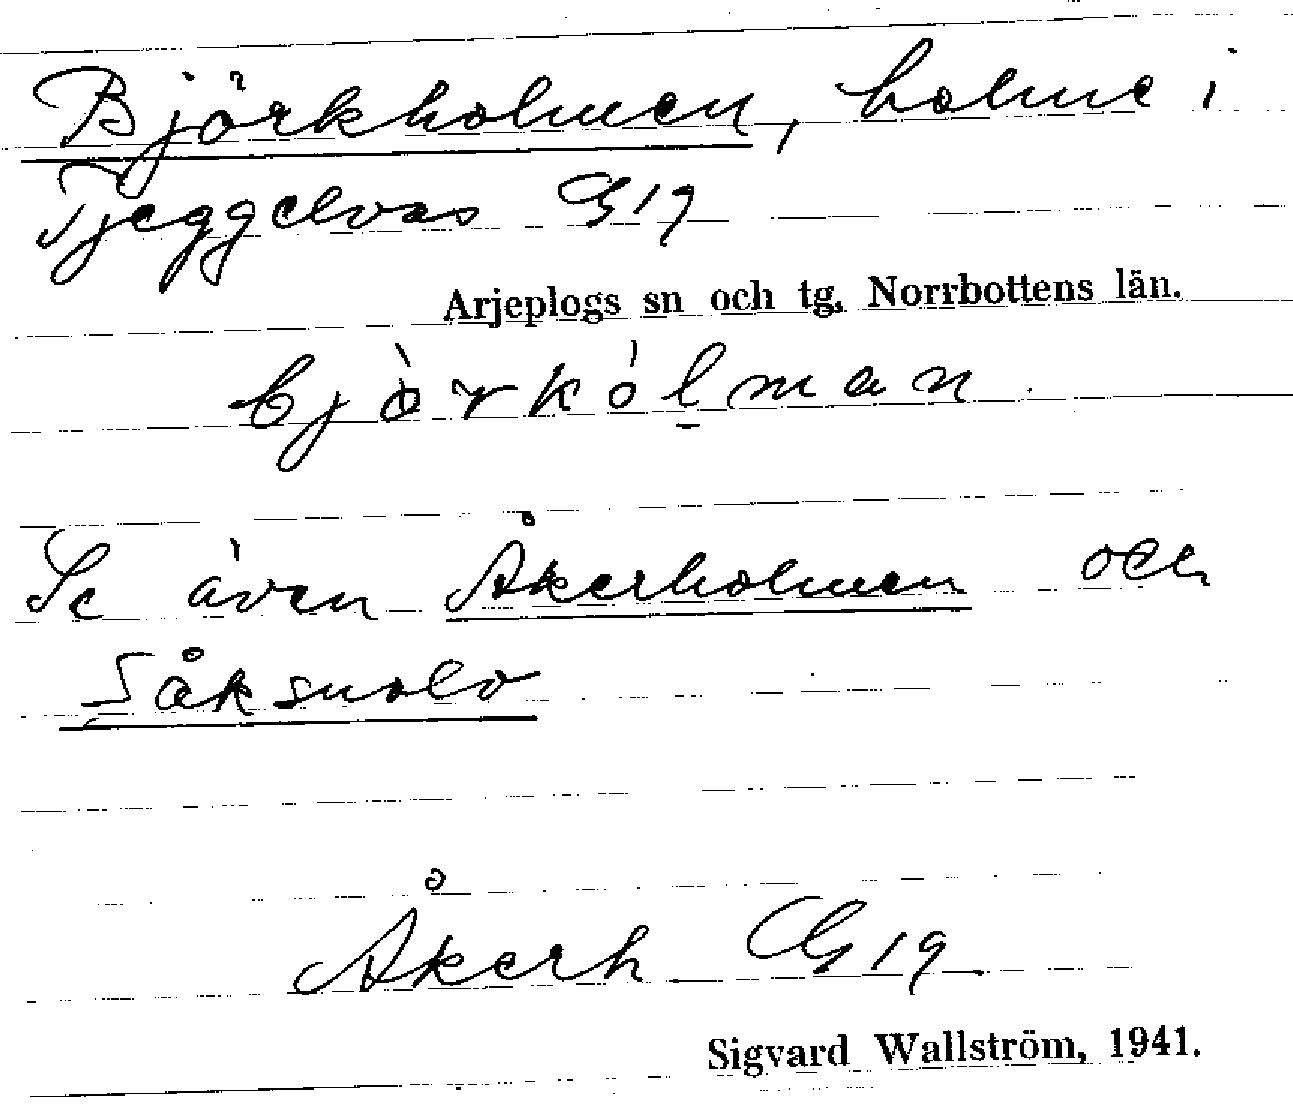 Björkholmen, holme i
Tjeggelvas G19
Arjeplogs sn och tg, Norrbottens län.
bjò̀rkólman
Se även Åkerholmen och
Såksuolo
Åkerh G19
Sigvard Wallström, 1941.